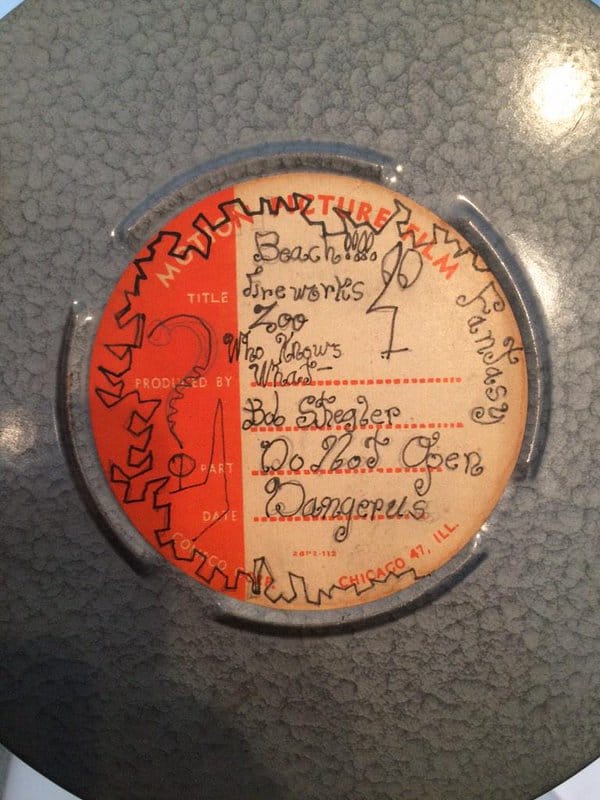 MOTION PICTURE FILM
Beach!!!!!
TITLE
Fireworks
Zoo
Who Knows
What-
Fantasy
PRODUCED BY
Bob Stregler
PART
Do Not Open
DATE
Dangerus
26PR-112
COMCO
CHICAGO 47, ILL.